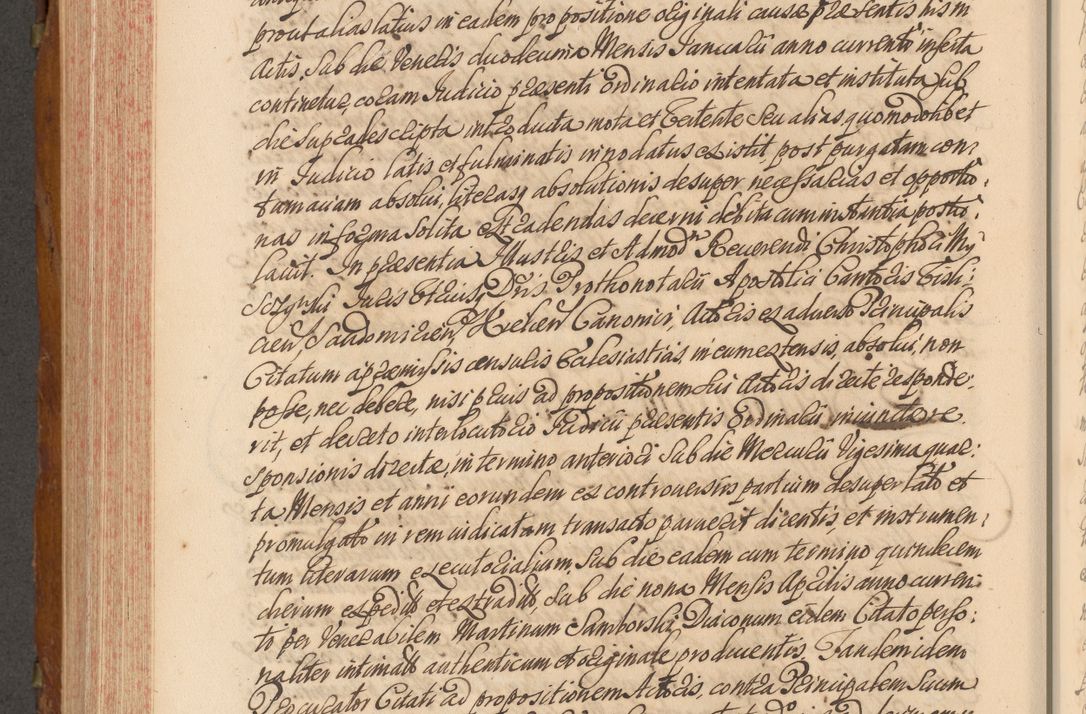 prout alias latius in eadem propositione originali causæ præsentis his in
Actis, sub die Veneris duodecima Mensis Januarii anno currenti inserta
continetur, coram Judicio præsenti Ordinario intentata et instituta, sub
die supradescripta introducta mota et vertente seu alias quomodolibet
in Judicio latis et fulminatis innodatus existit, post purgatam con:
tumaciam absolvi, literasq absolutionis desuper necessarias et opportu:
nas in forma solita extradendas decerni debita cum instantia postu:
lavit. In præsentia Illustris et Admodm Reverendi Christophori My
Juris Utriusq Dris Prothonotarii Apostolici Cantoris
cien, Sandomirien, Kielcen Canonici, Actoris ex adverso Principalis
Citatum a præmissis censuris Ecclesiasticis in eum extensis, absolvi, non
posse, nec debere, nisi prius ad propositionem sui Actoris directe responde:
rit, et decreto interlocutorio Judicii præsentis Ordinarii iniunctæ re
sponsionis directæ, in termino anteriori sub die Mercurii Vigesima quar:
ta Mensis et anni eorundem ex controversiis partium desuper lato et
promulgato in rem iudicatam transacto paruerit dicentis, et instrumen:
tum literarum executorialium, sub die eadem cum termino quindecem
dierum expedito et extradito, sub die nona Mensis Aprilis anno curren:
to per Venerabilem Martinum Samborski Diaconum eidem Citato perso:
naliter intimato authenticum et originale producentis. Tandem idem
Procurator Citati ad propositionem Actoris, contra Principalem suum